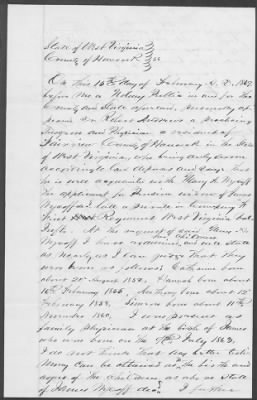 State of West Virginia
County of Hancock } ss
On this 15th day of February A. D. 1867
before me a Notary Public in and for the
County and State aforesaid, personally ap-
peared Dr Robert a practicing
Surgeon and Physician a resident of
Fairview County of Hancock in the State
of West Virginia, who being duly sworn
according to law deposes and says that
he is well acquainted with Mary A. Mycoff
the applicant for Pension widow of James
Mycoff late a private in Company
First Regiment West Virginia
At the request of said
Mycoff I have examined and will state
as nearly as I can judge that they
were born as follows: Catharine born
about 25th August 1853, Hannah born about
16th February 1855, born about 12th
February 1858, born about 11th
November 1860, I was present as
family physician at the birth of James
who was born on the July 1863,
I do not think that any better testi
mony can be obtained as to the births and
ages of the children as above stated
of James Mycoff dec'd.